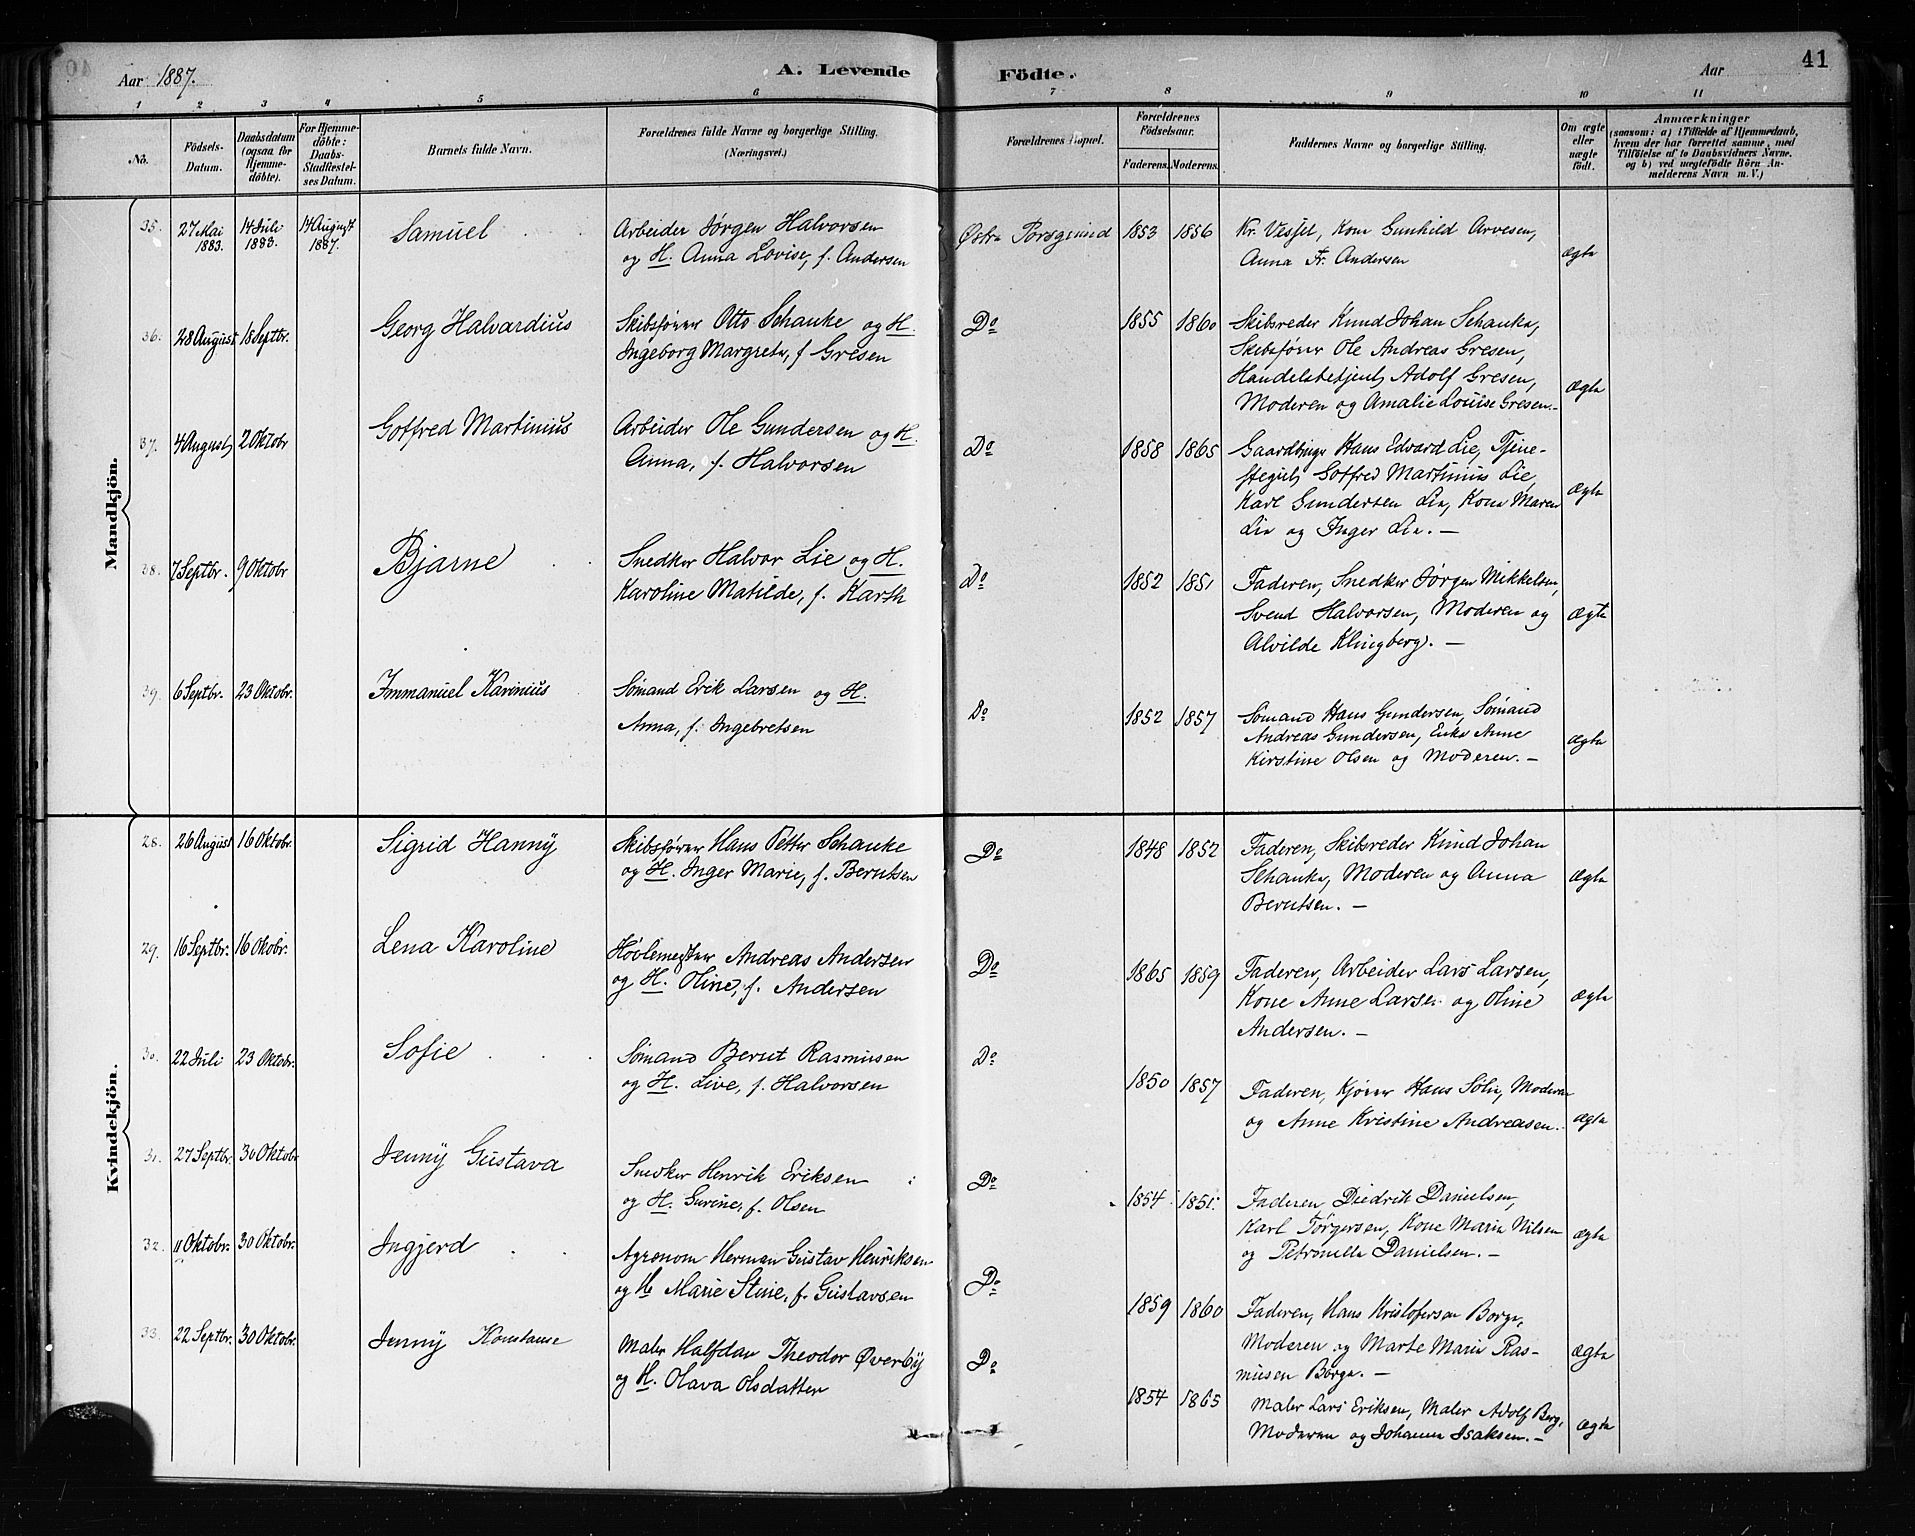 Aar 1887.
A. Levende Födte.
Aar
41
1 2 3 4 5 6 7 8 9 10 11
No.
Födsels-Datum.
Daabsdatum (ogsaa for Hjemme-döbte).
For Hjemme-döbte: Daabs-Stadfæstel-ses Datum.
Barnets fulde Navn.
Forældrenes fulde Navne og borgerlige Stilling. (Næringsvei.)
Forældrenes Bopæl.
Forældrenes Födselsaar.
Faderens. Moderens.
Faddernes Navne og borgerlige Stilling.
Om ægte eller uægte födt.
Anmærkninger
(saasom: a) i Tilfælde af Hjemmedaab,
hvem der har forrettet samme, med
Tilföielse af to Daabsvidners Navne.
og b) ved uægtefödte Börn An-
melderens Navn m. V.)
Mandkjön.
35. 27 Mai 1883. 14 Juli 1883. 14 August 1887. Samuel
Arbeider Jørgen Halvorsen
og H. Anna Lovise, f. Andersen
Østre Porsgrund 1853 1856
Kr. Vessel, Kone Gunhild Arvesen,
Anna Fr. Andersen
ægte
36. 28 August 18 Septbr. Georg Halvardius
Skibsfører Otto Schanke og H.
Ingeborg Margrete, f Gresen
Do 1855 1860
Skibsreder Knud Johan Schanke,
Skibsfører Ole Andreas Gresen,
Handelsbetjent Adolf Gresen,
Moderen og Amalie Louise Gresen.-
Ægte
37. 4 August, 2 Oktobr Gotfred Martinius
Arbeider Ole Gundersen og H.
Anna, f. Halvorsen
Do 1858 1865
Gaardbruger Hans Edvard Lie, Tjene-
stegut Gotfred Martinius Lie,
Karl Gundersen Lie, Kone Maren
Lie og Inger Lie. —
ægte
38. 7 Septbr. 9 Oktobr Bjarne
Snedker Halvor Lie og H.
Karoline Matilde, f. Karth
Do 1852 1851
Faderen, Snedker Jørgen Mikkelsen,
Svend Halvorsen, Moderen og
Alvilde Klingberg. —
ægte
39. 6 Septbr. 23 Oktobr. Immanuel Karinius
Sømand Erik Larsen og H.
Anna, f. Ingebretsen
Do 1852 1857
Sømand Hans Gundersen, Sømand
Andreas Gundersen, Enke Anne
Kirstine Olsen og Moderen. —
Ægte
Kvindekjön.
28. 26 August 16 Oktobr. Sigrid Hanny
Skibsfører Hans Petter Schanke
og H. Inger Marie, f. Berntsen
Do 1848 1852
Faderen, Skibsreder Knud Johan
Schanke, Moderen og Anna
Berntsen. —
Ægte
29. 16 Septbr. 16 Okobr. Lena Karoline
Høvlemester Andreas Andersen
og H. Oline, f. Andersen
Do 1865 1859
Faderen, Arbeider Lars Larsen,
Kone Anne Larsen og Oline
Andersen. —
Ægte
30. 22 Juli 23 Oktobr. Sofie
Sømand Bernt Rasmussen
og H. Live, f. Halvorsen
Do 1850 1857
Faderen, Kjører Hans Solie, Moderen
og Anne Kristine Andreasen.
Ægte
31. 27 Septbr. 30 Oktobr Jenny Gustava
Snedker Henrik Eriksen
og H. Gurine, f. Olsen
Do 1854 1851
Faderen, Diedrik Danielsen,
Karl Törgersen, Kone Maria Nilsen
og Petronelle Danielsen. —
ægte
32. 11 Oktobr. 30 Oktobr. Ingjerd
Agronom Herman Gustav Henriksen
og H Marie Stine, f. Gustavsen
Do 1859 1860
Faderen, Hans Kristofersen Borge,
Moderen og Marte Marie Ras-
mussen Borge. —
Ægte
33. 22 Septbr. 30 Oktobr. Jenny Konstanse
Maler Halfdan Theodor Øverby
og H. Olava Olsdatter
Do 1854 1865
Maler Lars Eriksen, Maler Adolf Berg,
Moderen og Johanne Isaksen. —
Ægte